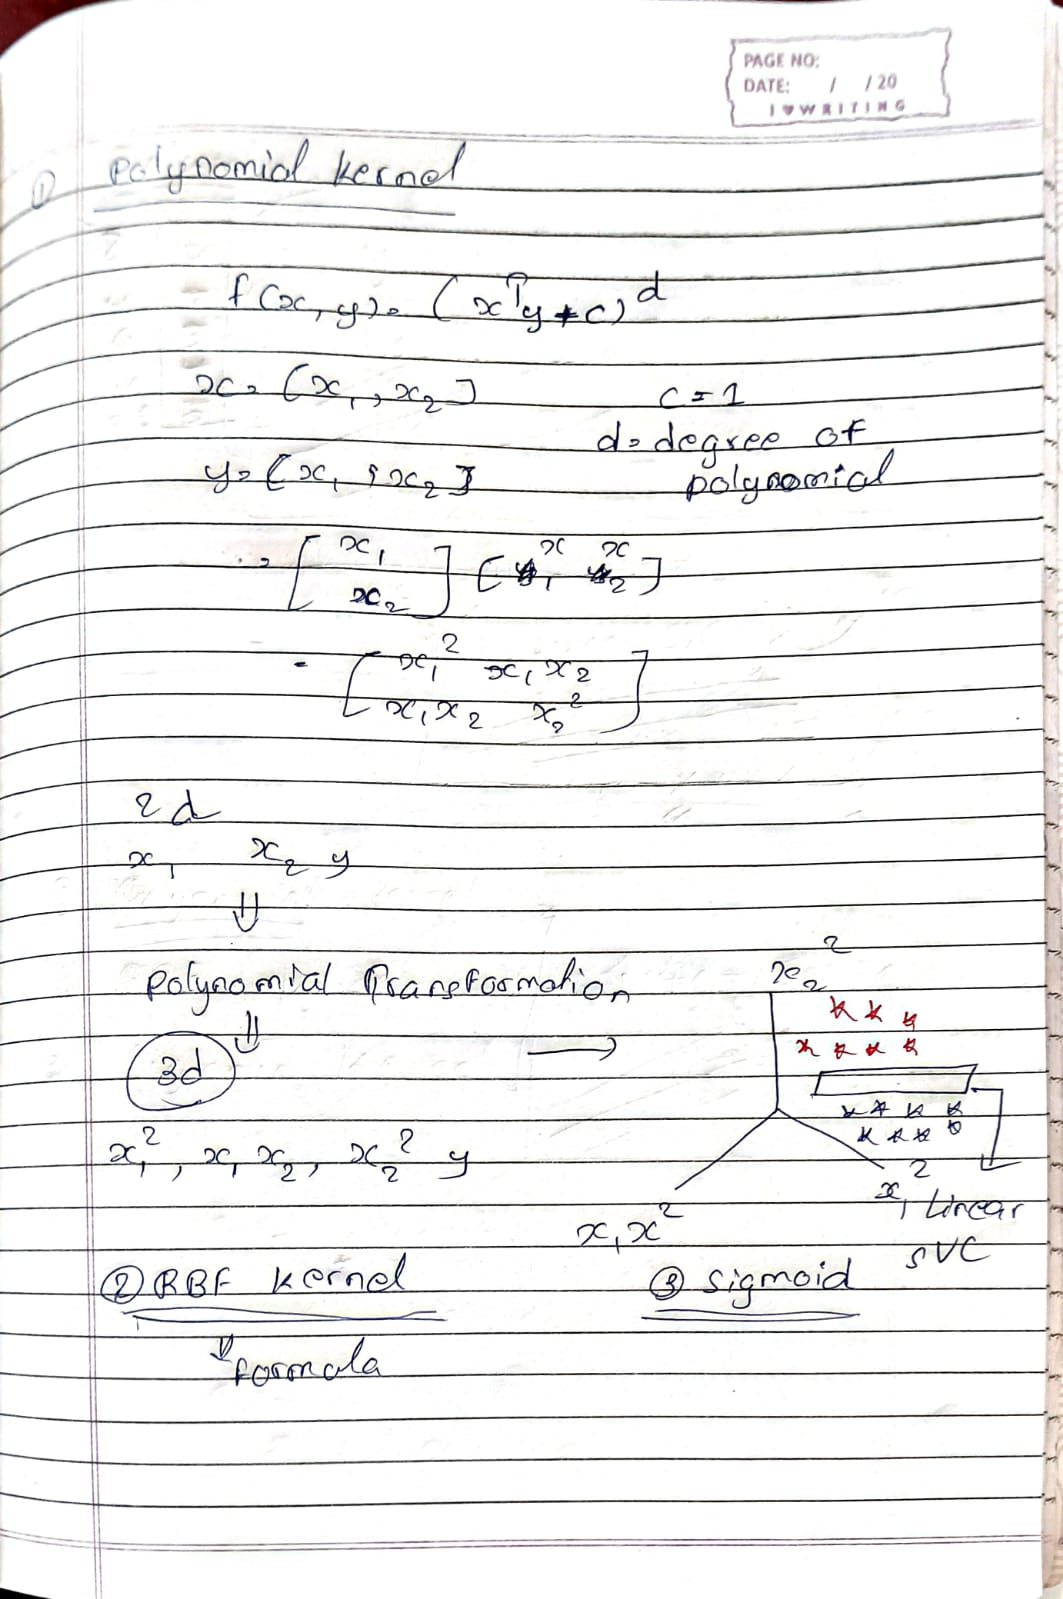 PAGE NO:
DATE: / / 20
I ♥ WRITING
① Polynomial kernel
f(x, y) = (xᵀy + c)ᵈ
x = [x₁, x₂] c = 1
d = degree of
y = [x₁, x₂] polynomial
∴ = [x₁ x₂] [x₁ x₂]
= [x₁² x₁x₂
x₁x₂ x₂²]
2d
x₁ x₂ y
⇓
Polynomial Transformation
⇓
3d →
x₁², x₁x₂, x₂² y
x₂²
x₁x²
x₁²
Linear
SVC
② RBF kernel ③ Sigmoid
↓ formula